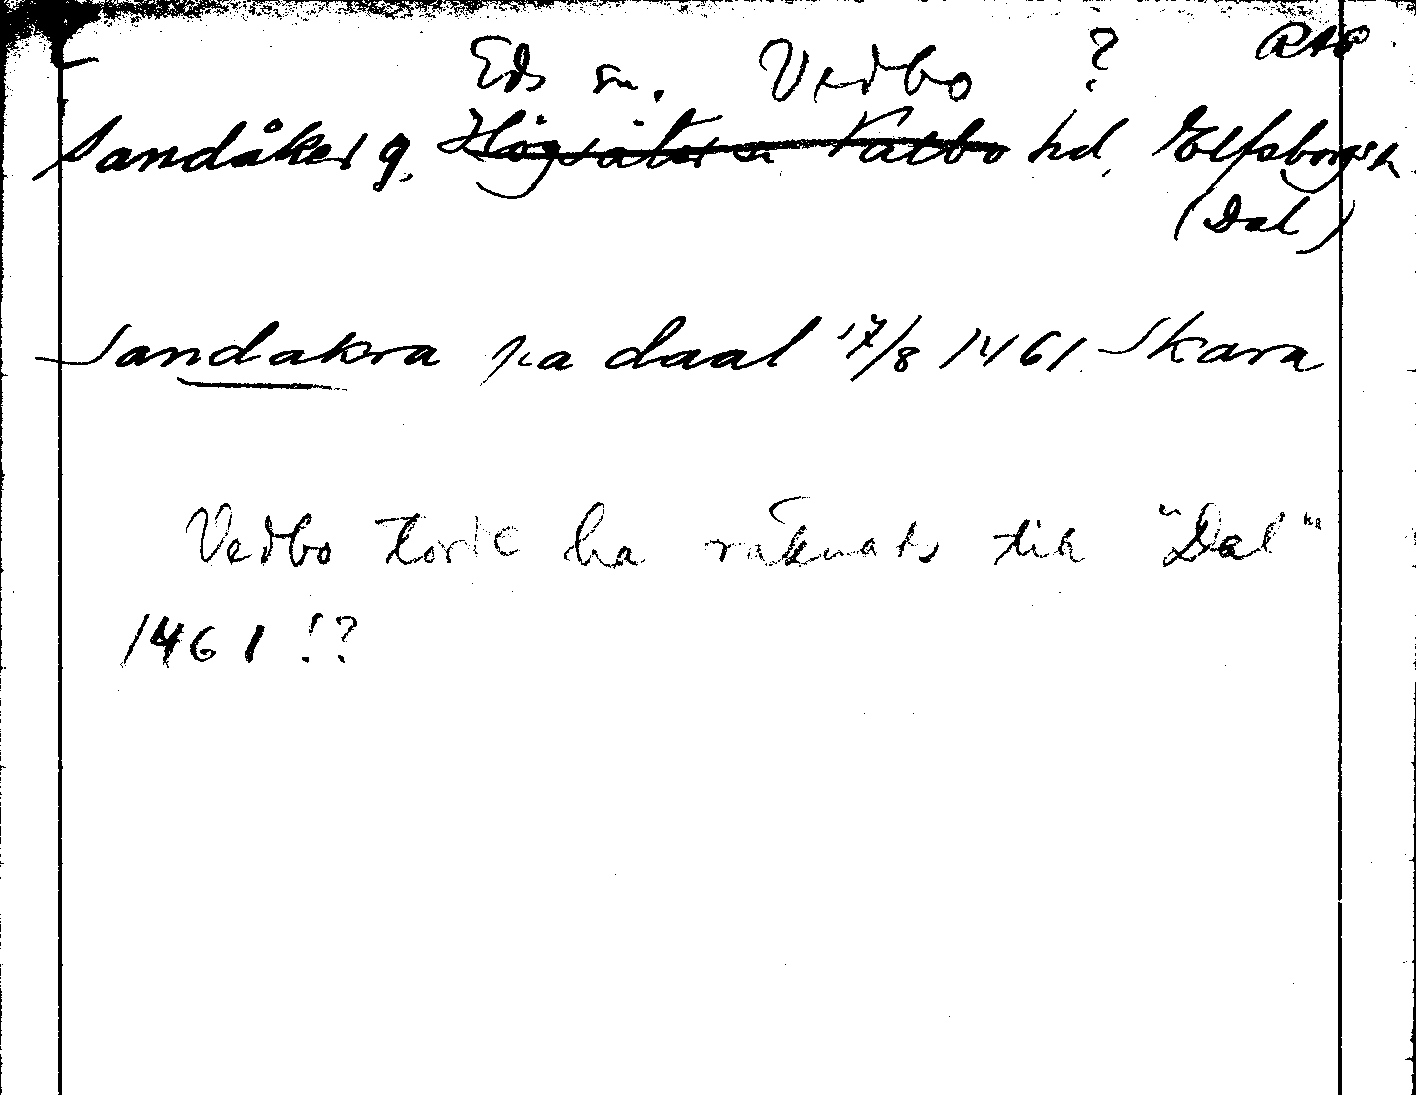 Eds sn. Vedbo ? RAP
Sandåker g. Högsäter sn Valbo hd, Elfsborgs l.
(Dal)
Sandakra pa daal 17/8 1461 Skara
Vedbo torde ha räknats till "Dal"
1461 !?